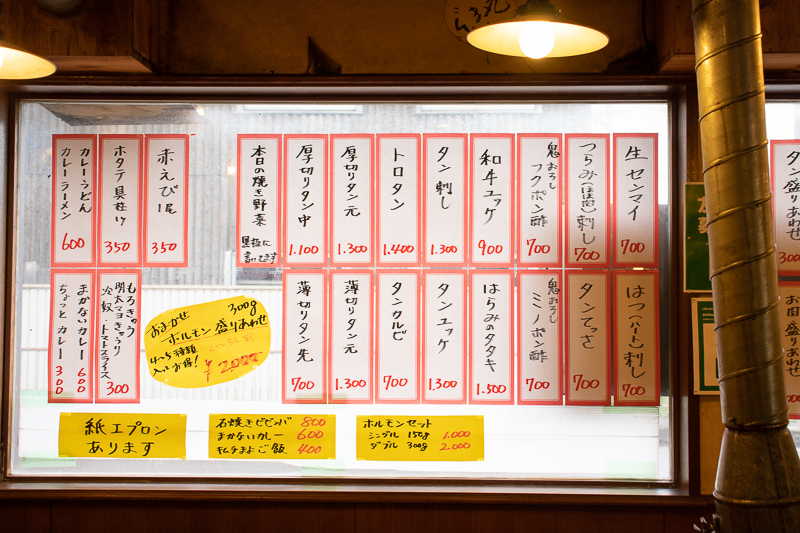 生センマイ
700
つらみ(ほほ肉)刺し
700
鬼おろし
フクポン酢
700
和牛ユッケ
900
タン刺し
1.300
トロタン
1.400
厚切りタン元
1.300
厚切りタン中
1.100
本日の焼き野菜
黒板に
書いてます
赤えび1尾
350
ホタテ貝柱1ヶ
350
カレーうどん
カレーラーメン
600
はつ(ハート)刺し
700
タンてっさ
700
鬼おろし
ミノポン酢
700
はらみのタタキ
1.500
タンユッケ
1.300
タンカルビ
700
薄切りタン元
1.300
薄切りタン先
700
おまかせ 300g
ホルモン盛りあわせ
4〜5種類
入ってお得!
もろきゅう
明太マヨきゅうり
冷奴・トマトスライス
300
まかないカレー 600
ちょっとカレー 300
紙エプロン
あります
石焼きビビンバ 800
まかないカレー 600
キムチまよご飯 400
ホルモンセット
シングル 150g 1.000
ダブル 300g 2.000
タン盛りあわせ
お肉盛りあわせ